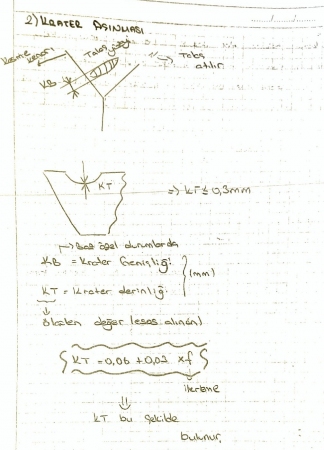 2) KRATER AŞINMASI
Kesme kenarı
Talaş yüzeyi
Talaş
atılır
KB
KT
=> KT ≤ 0,3mm
→ Bazı özel durumlarda
KB = Krater Genişliği
(mm)
KT = Krater derinliği
⇓
ölçülen değer (esas alınan)
KT = 0,06 + 0,02 x f
ilerleme
⇓
KT bu şekilde
bulunur.